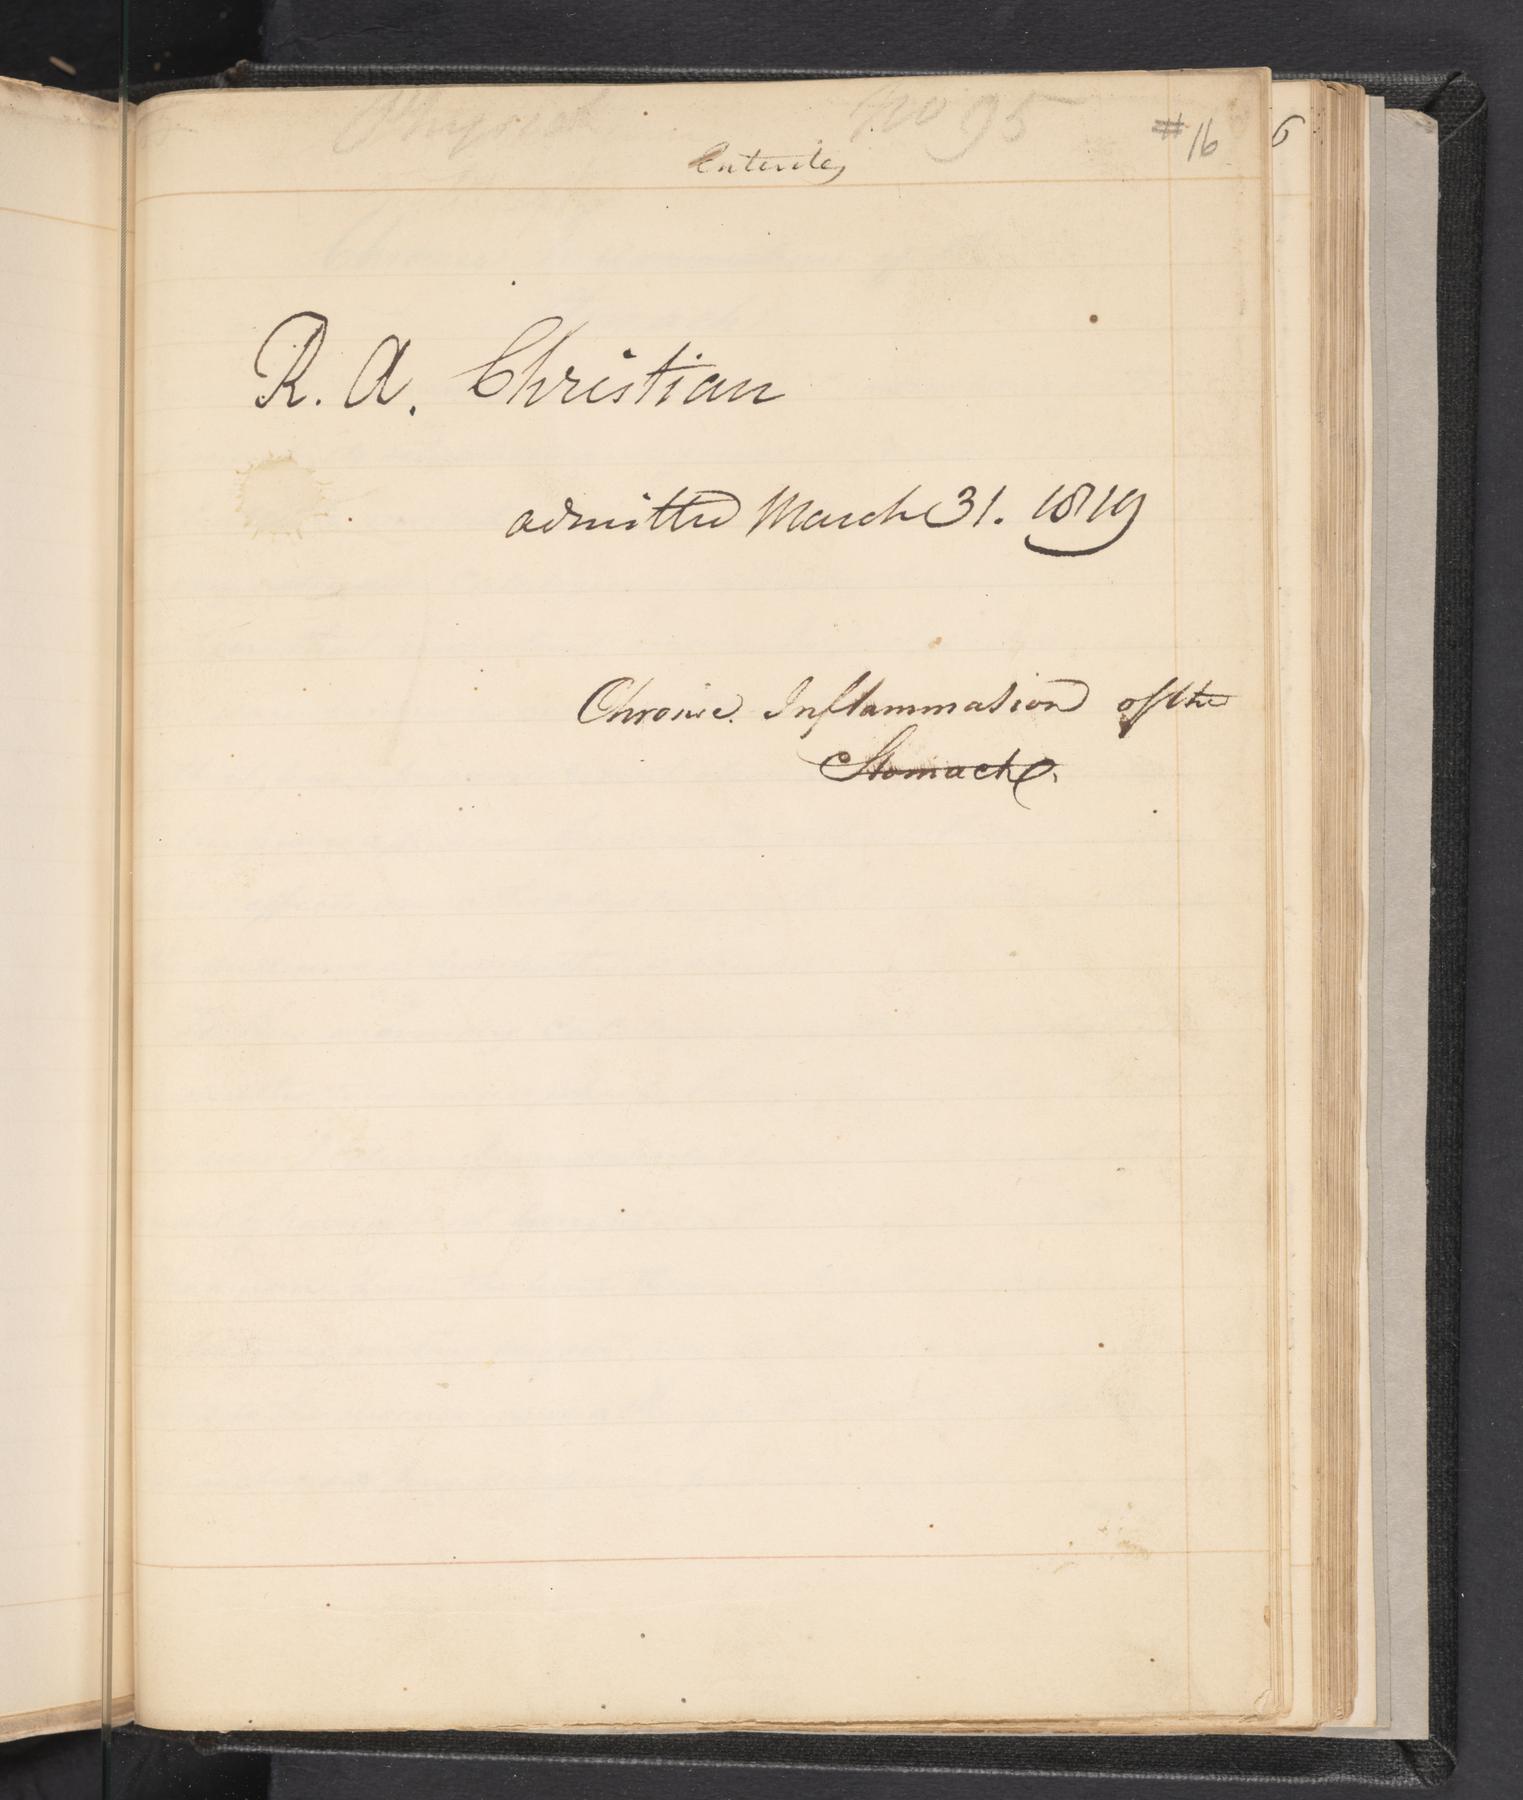 no 95
# 16
6
R. A. Christian
admitted March 31. 1819
Chronic Inflammation of the
Stomach.